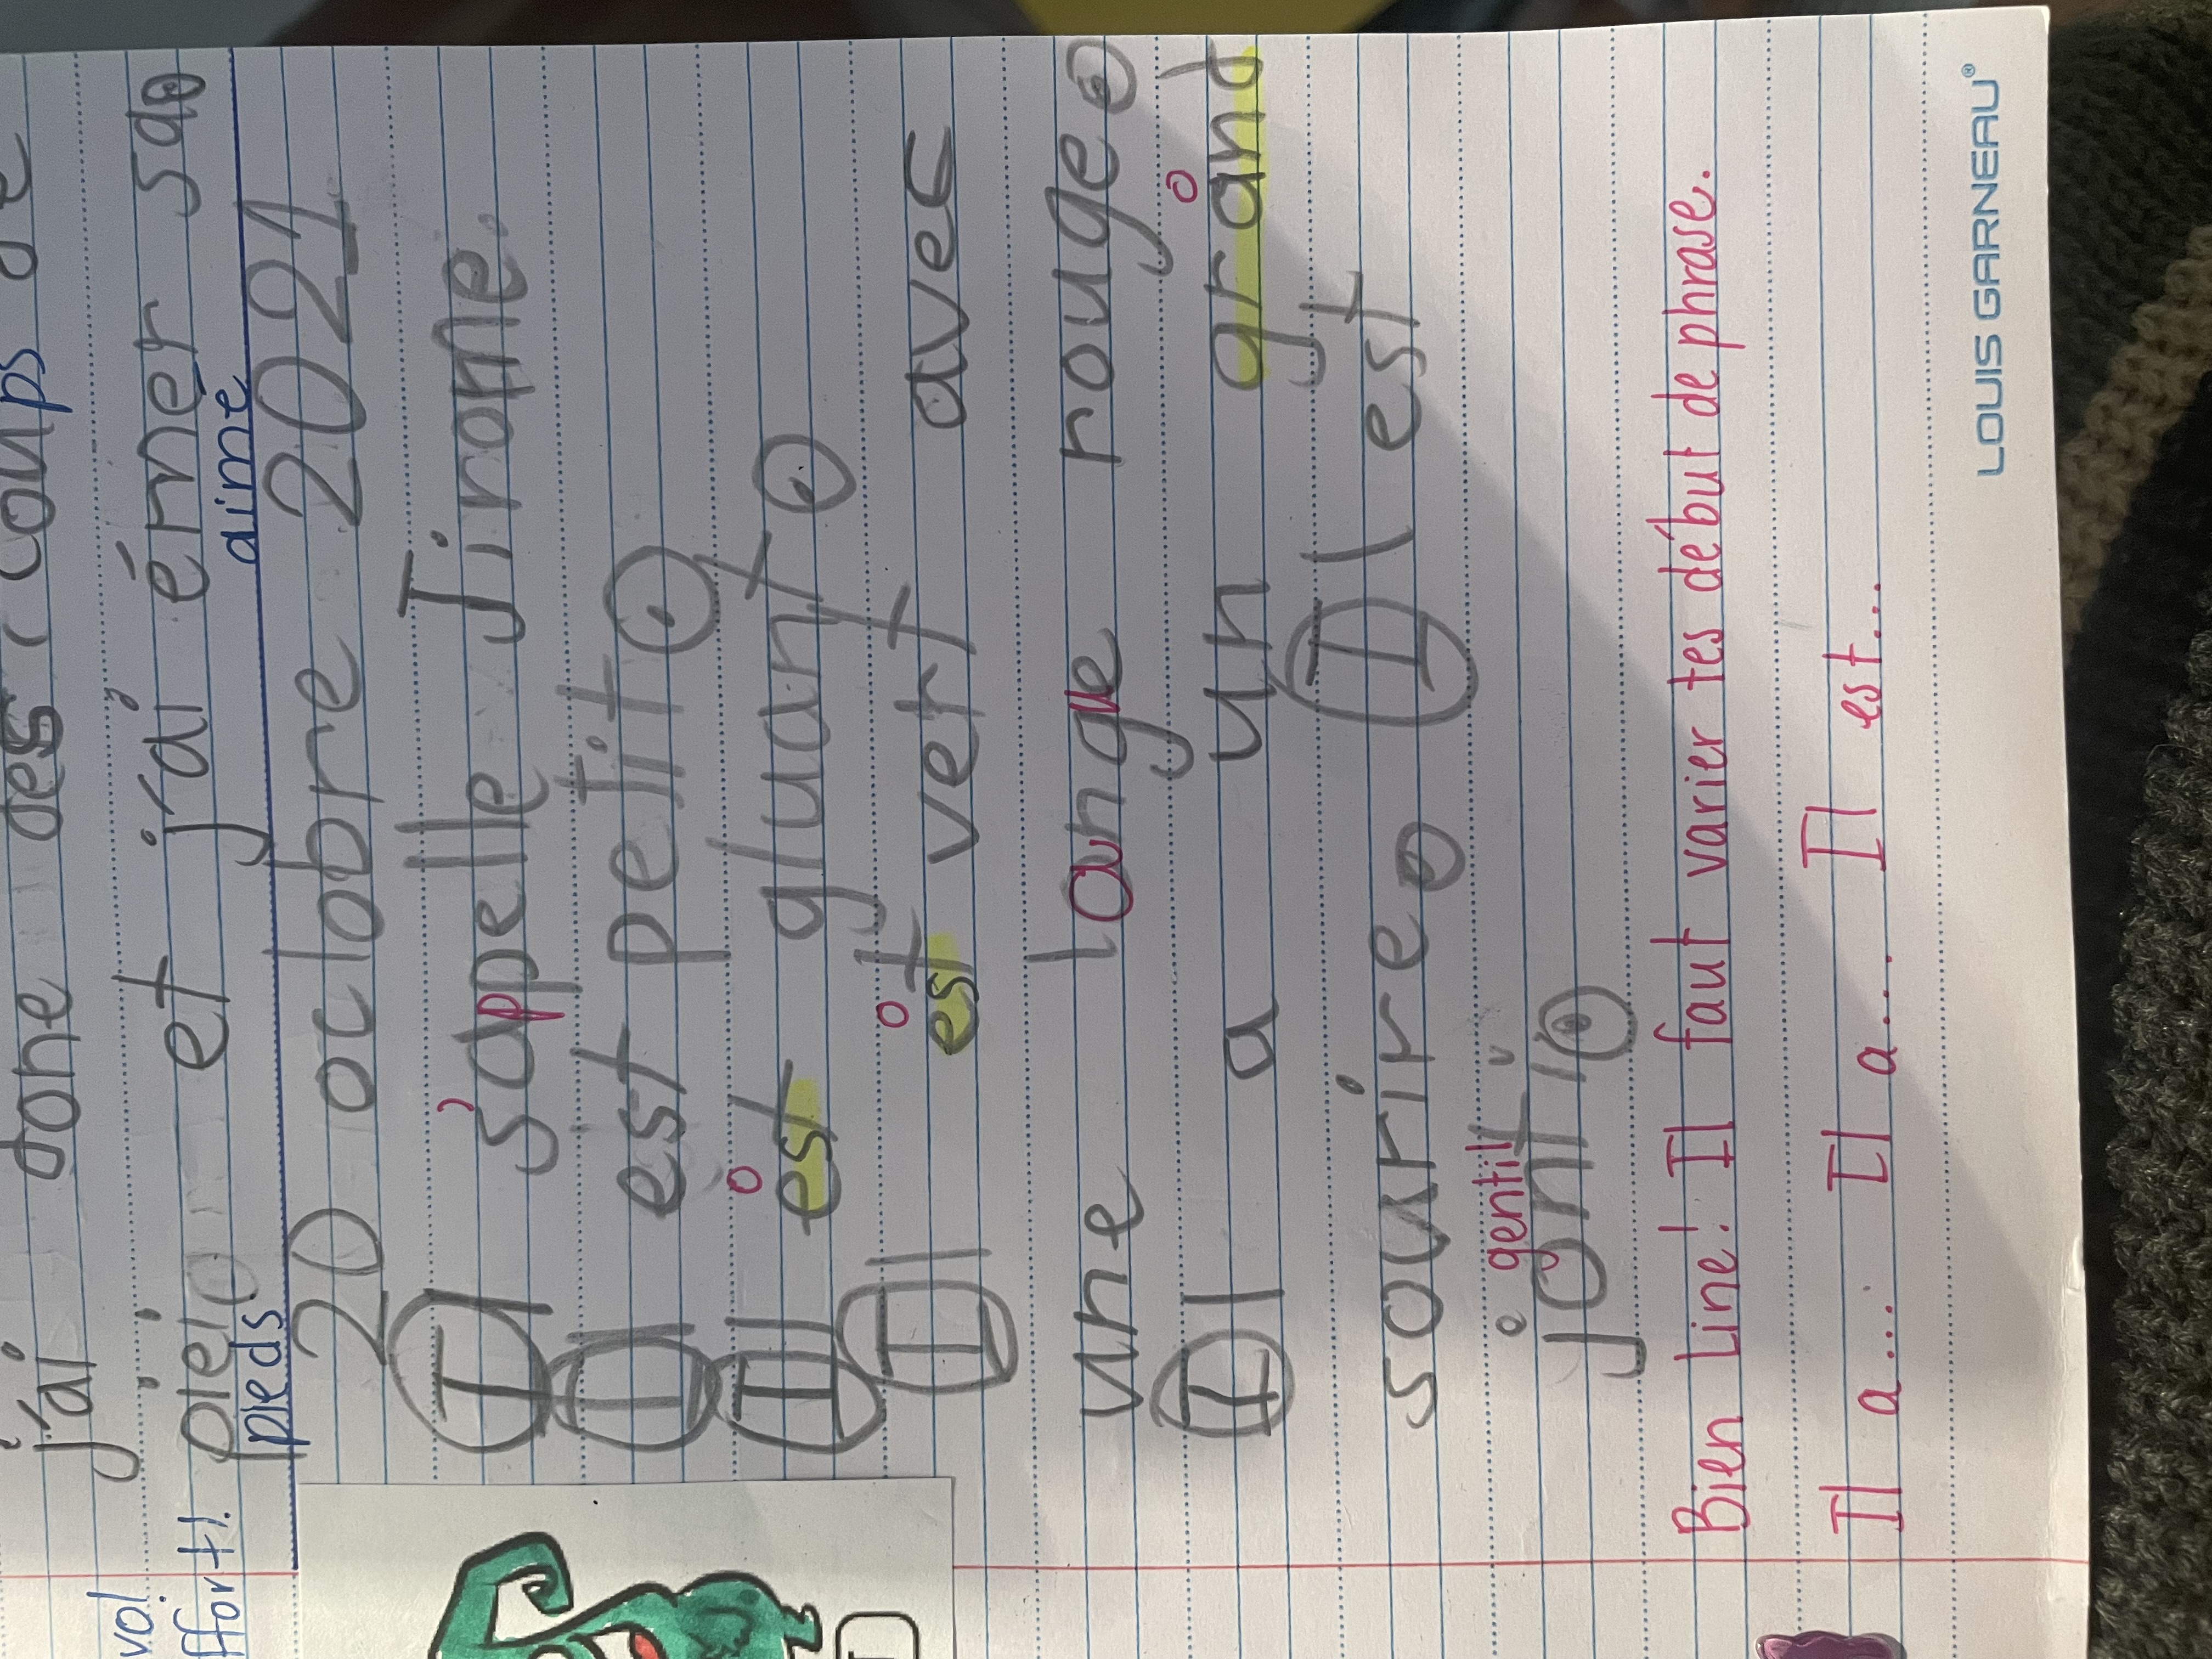 done des coups je
j'ai
et j'ai émer sa
vol
pieds aimé
fort!
20 octobre 2021
Il s'appelle Jirome.
Il est petit.
Il est gluant.
Il est vert avec
une langue rouge.
Il a un grand
sourire. Il est
gentil
jontil.
Bien Line! Il faut varier tes début de phrase.
Il a... Il a... Il a... Il est...
LOUIS GARNEAU®